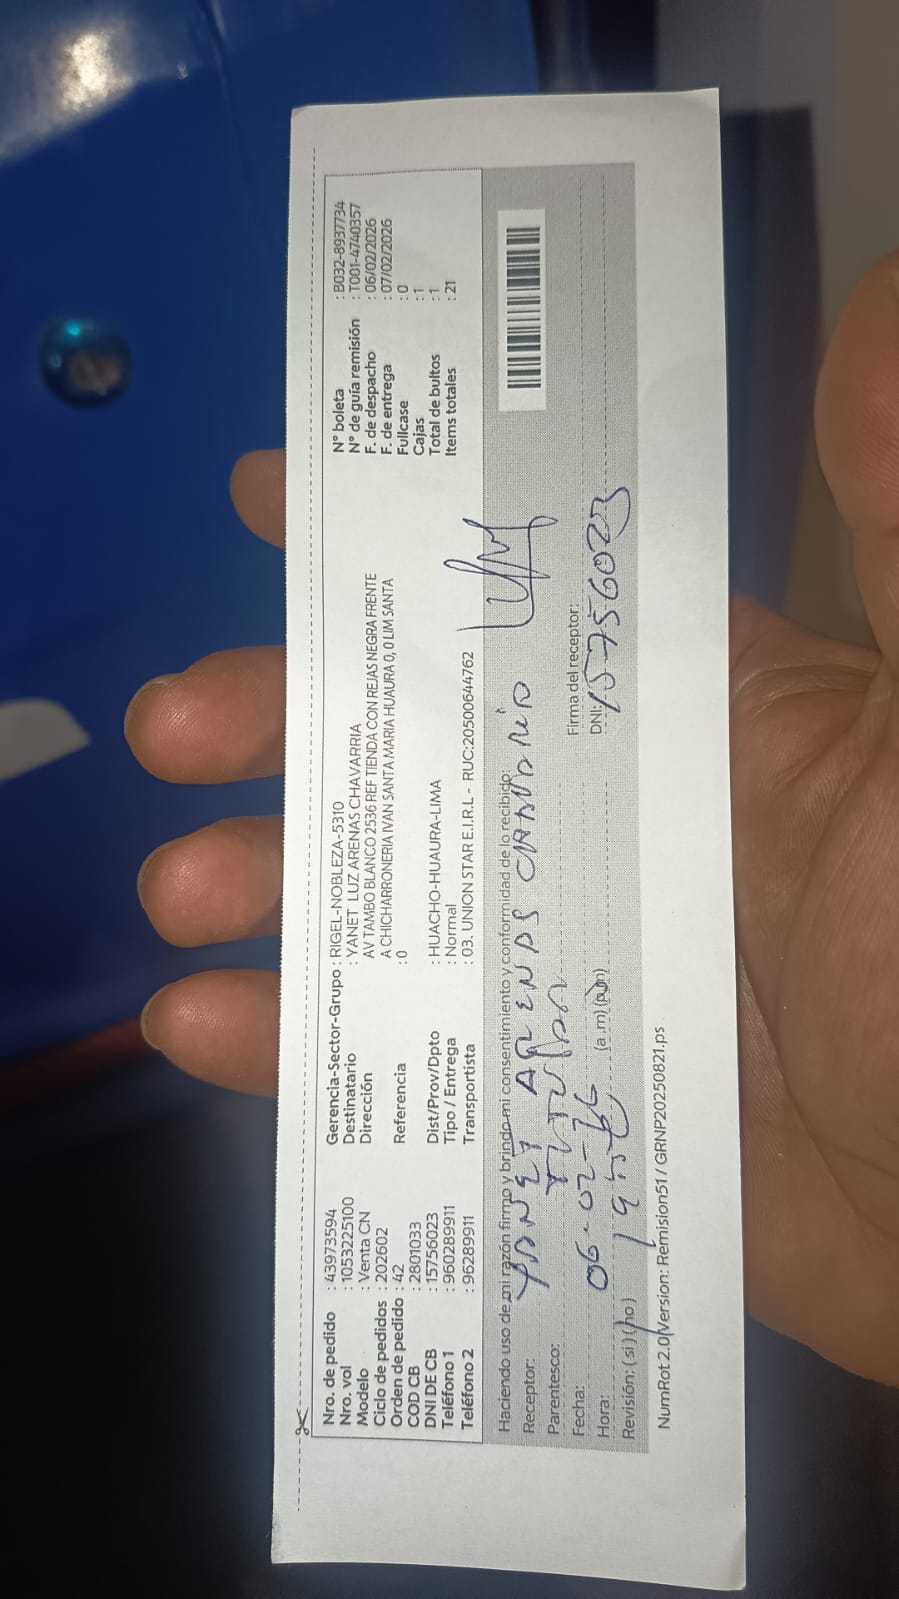 Nro. de pedido : 43973594
Nro. vol : 1053225100
Modelo : Venta CN
Ciclo de pedidos : 202602
Orden de pedido : 42
COD CB : 2801033
DNI DE CB : 15756023
Teléfono 1 : 960289911
Teléfono 2 : 96289911
Gerencia-Sector-Grupo : RIGEL-NOBLEZA-5310
Destinatario : YANET LUZ ARENAS CHAVARRIA
Dirección AV TAMBO BLANCO 2536 REF TIENDA CON REJAS NEGRA FRENTE
A CHICHARRONERIA IVAN SANTA MARIA HUAURA 0, 0 LIM SANTA
Referencia : 0
Dist/Prov/Dpto : HUACHO-HUAURA-LIMA
Tipo / Entrega : Normal
Transportista : 03. UNION STAR E.I.R.L - RUC:20500644762
N° boleta : B032-8937734
N° de guía remisión : T001-4740357
F. de despacho : 06/02/2026
F. de entrega : 07/02/2026
Fullcase : 0
Cajas : 1
Total de bultos : 1
Items totales : 21
Haciendo uso de mi razón firmo y brindo mi consentimiento y conformidad de lo recibido:
Receptor: YANET ARENAS
Parentesco:
Fecha: 06-02-26
Hora: (a.m) (p.m)
Revisión: ( si ) ( no )
Firma del receptor:
DNI: 15756023
NumRot 2.0/Version: Remision51 / GRNP20250821.ps